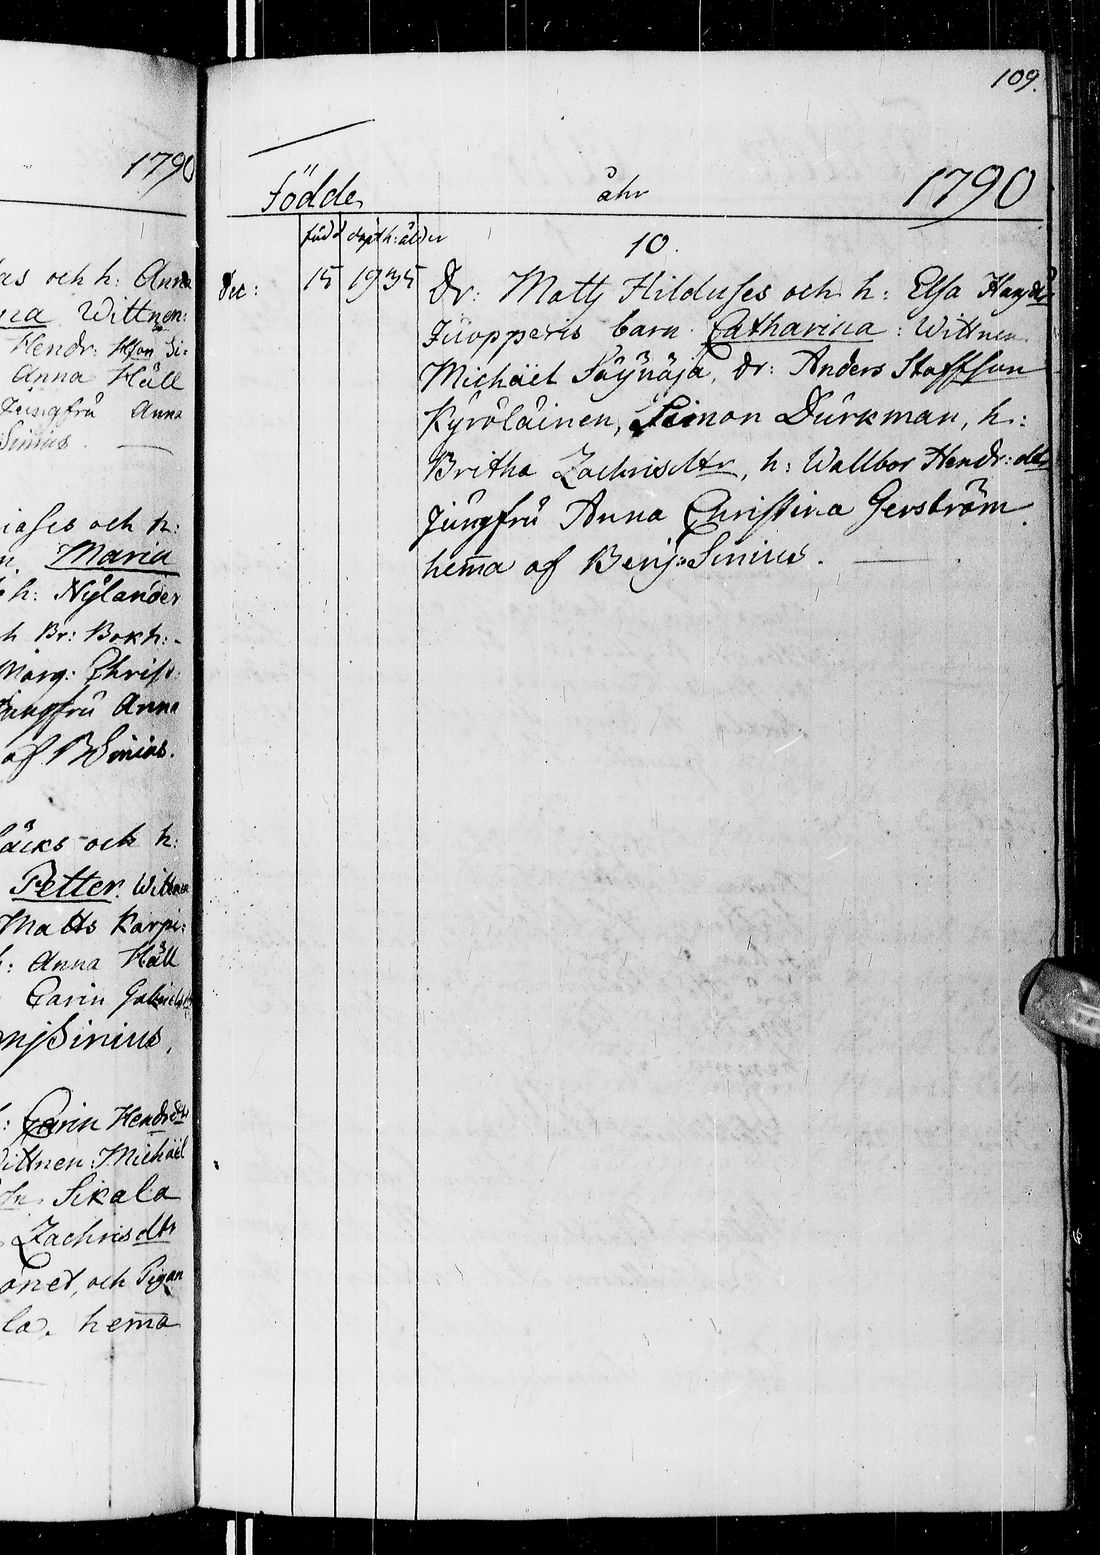 1790
as och h: Anna
Wittnen:
Hendr:
Anna Häll
Jungfru Anna
Sinius.
och h:
Maria
h: Nylander
Br: Bokh:
Marg: Christ:
Jungfru Anna
af BSinius.
och h:
Petter. Wittnen
Matts Karpi:
h: Anna Häll
Carin Gabrielsdtr
Sinius.
Carin Hendrsdtr
Wittnen: Michäel
Sikala
Zachrisdtr
och Pigan
la. hem̄a
109.
Födde åhr 1790
född döpt h: ålder
10.
Dec: 15 19 35 Dr: Matts Hilduses och h: Elsa
Juopperis barn Catharina: Wittnen
Michäel Säynäjä, Dr: Anders Staffsson
Kyröläinen, Simon Durkman, h:
Britha Zachrisdtr, h: Wallbor Hendr:dtr
Jungfru Anna Christina Gerström.
hem̄a af Benj: Sinius.